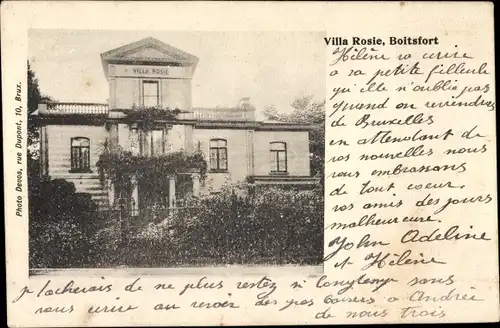 Villa Rosie, Boitsfort
VILLA ROSIE
Photo Devos, rue Dupont, 10, Brux.
Hélène va ecrire
a sa petite filleule
qu'elle n'oublie pas
quand on reviendra
de Bruxelles
en attendant de
vos nouvelles nous
vous embrassons
de tout coeur.
vos amis des jours
malheureux.
John Adeline
et Hélène
je tacherais de ne plus restez si longtemps sans
vous ecrire au revoir des gros baisers a Andrée
de nous trois